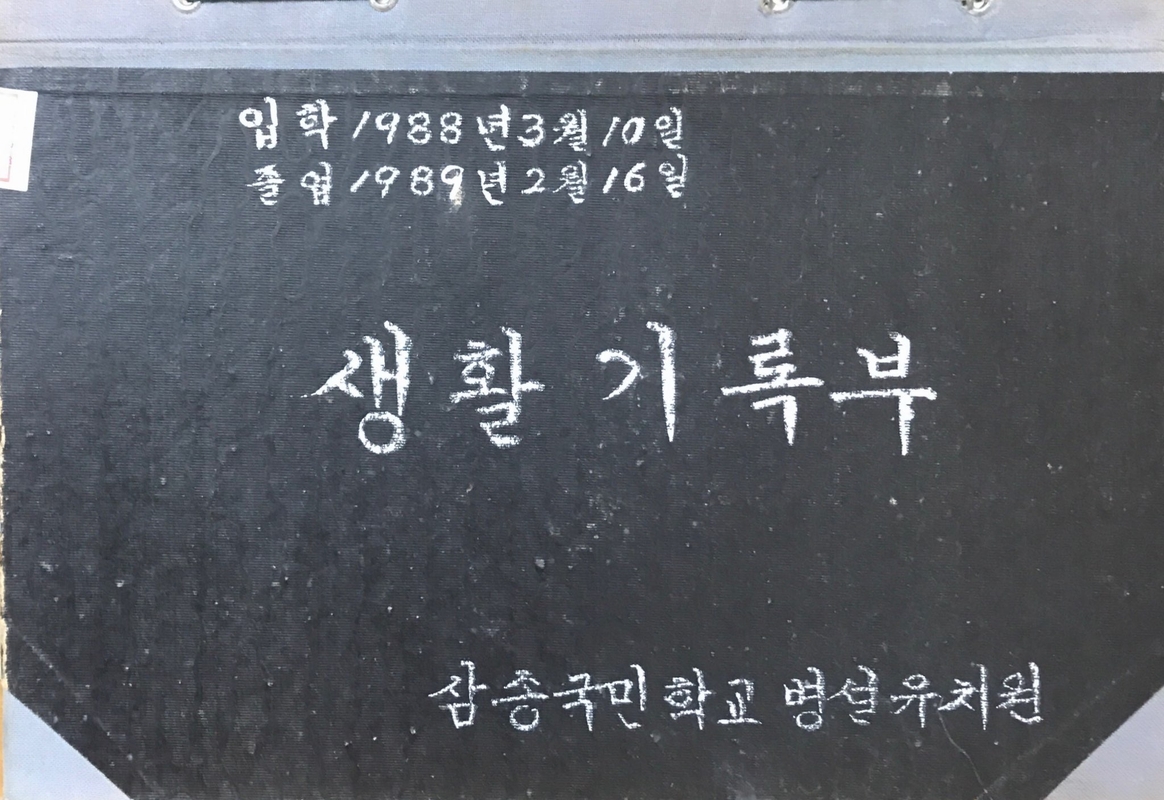 입학 1988년 3월 10일
졸업 1989년 2월 16일
생활기록부
삼송국민학교 병설유치원